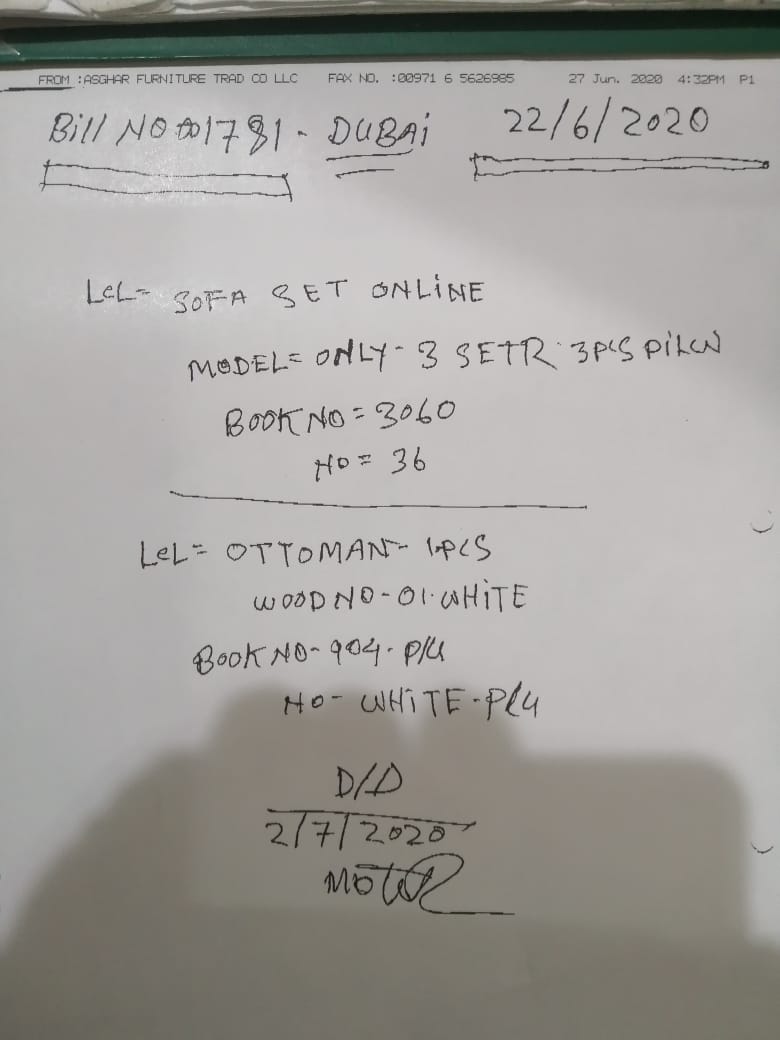 FROM :ASGHAR FURNITURE TRAD CO LLC FAX NO. :00971 6 5626985 27 Jun. 2020 4:32PM P1
Bill NO 001781 - DUBAi 22/6/2020
LeL= SOFA SET ONLiNE
MODEL= ONLY - 3 SETR 3PCS PiLCW
BOOK NO = 3060
NO = 36
LeL= OTTOMAN - 1PCS
WOOD NO - 01. WHiTE
BOOK NO - 904 - P/U
NO - WHiTE - PLU
D/D
2/7/2020